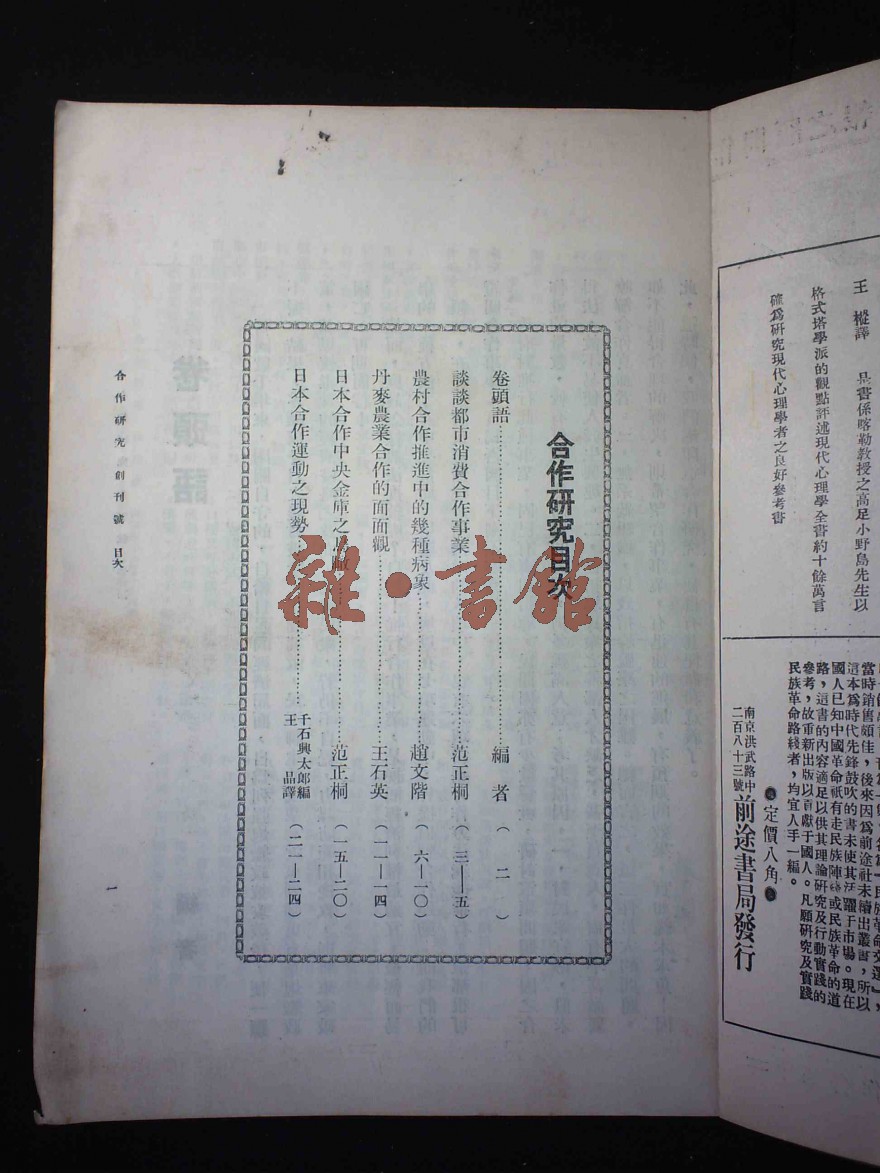 王樅譯 是書係喀勒教授之高足小野島先生以
格式塔學派的觀點評述現代心理學全書約十餘萬言
確爲研究現代心理學者之良好參考書
當時銷售頗佳，後來因爲前途社未續出叢書，所以
這本爲時代先鋒鼓吹的書未使其活躍于市場。現在
國人已知中國革命祇有走民族陣綫或民族革命的道
路，這書的內容適足以供其理論研究及行動實踐的
參考，故重新出版以貢獻于國人。凡願研究及實踐
民族革命路綫者，均宜人手一編。
定價八角
南京洪武路中
二百八十三號
前途書局發行
合作研究目次
卷頭語……編者（二）
談談都市消費合作事業……范正桐（三——五）
農村合作推進中的幾種病象……趙文階（六—一〇）
丹麥農業合作的面面觀……王石英（一一—一四）
日本合作中央金庫之……范正桐（一五—二〇）
日本合作運動之現勢……千石興太郎編 王品譯（二一—二四）
合作研究 創刊號 目次
一
雜·書館